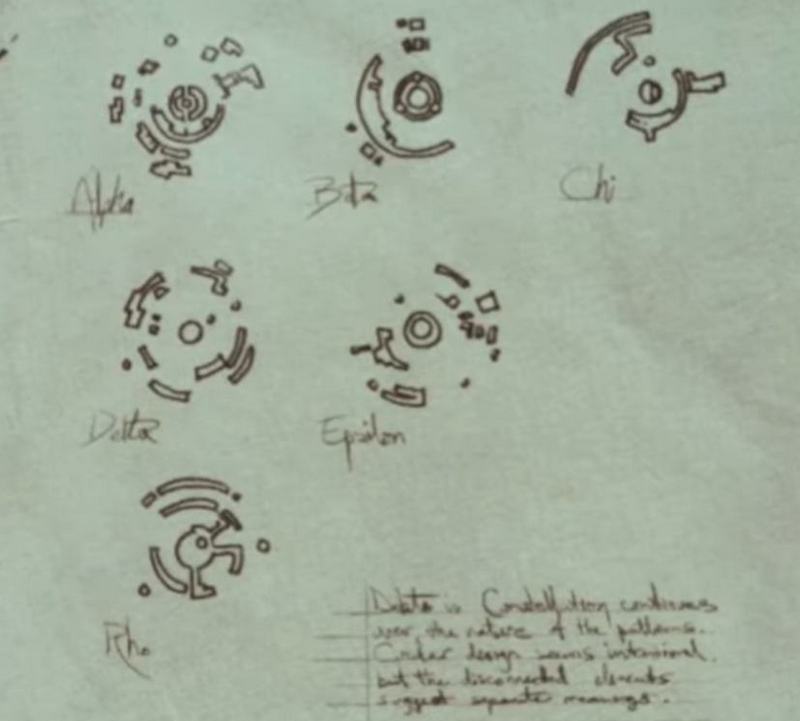 Alpha
Beta
Chi
Delta
Epsilon
Rho
Debate in continues
over the nature of the patterns.
Circular design seems intentional,
but the disconnected elements
suggest separate meanings.